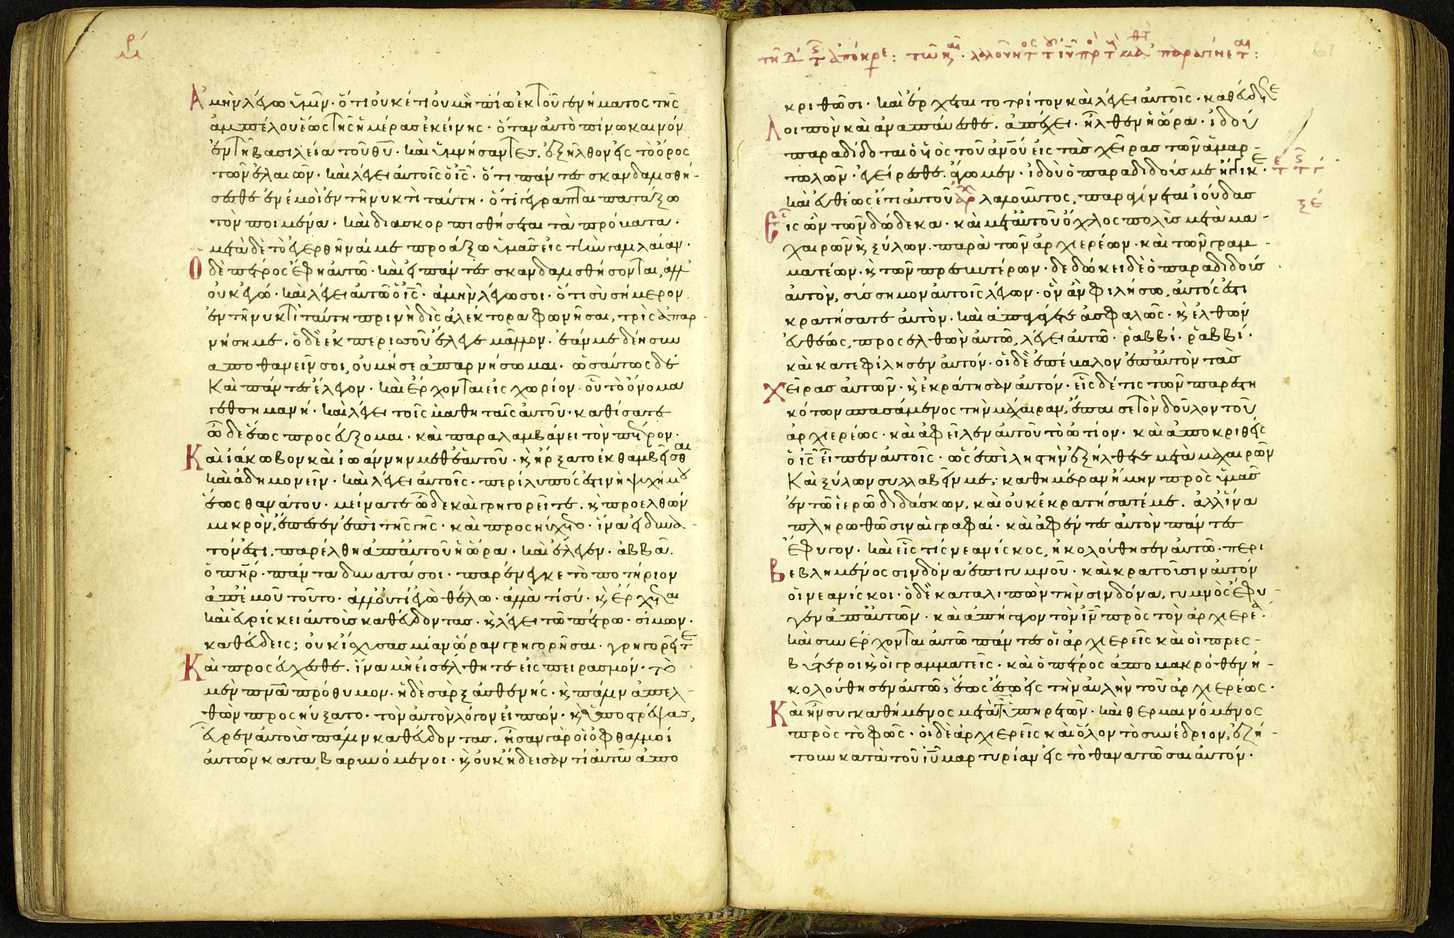 ρ̅ι̅
Ἀμὴν λέγω ὑμῖν· ὅτι οὐκέτι οὐ μὴ πίω ἐκ τοῦ γενήματος τῆς
ἀμπέλου ἕως τῆς ἡμέρας ἐκείνης· ὅταν αὐτὸ πίνω καινὸν
ἐν τῆ βασιλεία τοῦ θ̅υ̅· καὶ ὑμνήσαντες, ἐξῆλθον εἰς τὸ ὄρος
τῶν ἐλαιῶν· καὶ λέγει αὐτοῖς ὁ ι̅ς̅· ὅτι πάντες σκανδαλισθή-
σεσθε ἐν ἐμοὶ ἐν τῆ νυκτὶ ταύτη· ὅτι γέγραπται πατάξω
τὸν ποιμένα· καὶ διασκορπισθήσεται τὰ πρόβατα·
μετὰ δὲ τὸ ἐγερθῆναί με προάξω ὑμᾶς εἰς τὴν γαλιλαίαν·
Ὁ δὲ πέτρος ἔφη αὐτῶ· καὶ εἰ πάντες σκανδαλισθήσονται, ἀλλ'
οὐκ ἐγώ· καὶ λέγει αὐτῶ ὁ ι̅ς̅· ἀμὴν λέγω σοι· ὅτι σὺ σήμερον
ἐν τῆ νυκτὶ ταύτη πρινὴ δὶς ἀλέκτορα φωνῆσαι, τρὶς ἀπαρ-
νήση με· ὁ δὲ ἐκ περισσοῦ ἔλεγε μᾶλλον· ἐάν με δέη συν
αποθανεῖν σοι, οὐ μή σε ἀπαρνήσωμαι· ὡσαύτως δὲ
Καὶ πάντες ἔλεγον· καὶ ἔρχονται εἰς χωρίον· οὗ τὸ ὄνομα
γεθσημανή· καὶ λέγει τοῖς μαθηταῖς αὐτοῦ· καθίσατε
ὧδε ἕως προσεύξομαι· καὶ παραλαμβάνει τὸν πέτρον·
Καὶ ἰάκωβον καὶ ἰωάννην μεθ' ἑαυτοῦ· κ̀ ἤρξατο ἐκθαμβεῖσθαι
καὶ ἀδημονεῖν· καὶ λέγει αὐτοῖς· περίλυπός ἐστιν ἡ ψυχή μου
ἕως θανάτου· μείνατε ὧδε καὶ γρηγορεῖτε· κ̀ προελθὼν
μικρὸν, ἔπεσεν ἐπὶ τῆς γῆς· καὶ προσηύχετο· ἵνα εἰ δυνα-
τόν ἐστι, παρέλθη ἀπ' αὐτοῦ ἡ ὥρα· καὶ ἔλεγεν· ἀββᾶ
ὁ π̅η̅ρ̅· πάντα δυνατά σοι· παρένεγκε τὸ ποτήριον
ἀπ' ἐμοῦ τοῦτο· ἀλλ' οὐ τί ἐγὼ θέλω· ἀλλὰ τί σύ· κ̀ ἔρχεται
καὶ εὑρίσκει αὐτοὺς καθεύδοντας· κ̀ λέγει τῶ πέτρω· σίμων·
καθεύδεις; οὐκ ἴσχυσας μίαν ὥραν γρηγορῆσαι· γρηγορεῖτε
Καὶ προσεύχεσθε· ἵνα μὴ εἰσέλθητε εἰς πειρασμόν· τὸ
μὲν π̅ν̅α̅ πρόθυμον· ἡ δὲ σὰρξ ἀσθενής· κ̀ πάλιν ἀπελ-
θὼν προσηύξατο· τὸν αὐτὸν λόγον εἰπών· κ̀ ὑποστρέψας,
εὗρεν αὐτοὺς πάλιν καθεύδοντας· ἦσαν γὰρ οἱ ὀφθαλμοὶ
αὐτῶν καταβαρυνόμενοι· κ̀ οὐκ ἤδεισαν τί αὐτῶ ἀπο
κριθῶσι· καὶ ἔρχεται τὸ τρίτον καὶ λέγει αὐτοῖς· καθεύδετε
Λοιπὸν καὶ ἀναπαύεσθε· ἀπέχει· ἦλθεν ἡ ὥρα· ἰδοὺ
παραδίδοται ὁ υ̅ς̅ τοῦ α̅ν̅ο̅υ̅ εἰς τὰς χεῖρας τῶν ἁμαρ-
τωλῶν· ἐγείρεσθε· ἄγωμεν· ἰδοὺ ὁ παραδιδούς με ἤγγικε·
καὶ εὐθέως ἔτι αὐτοῦ λαλοῦντος, παραγίνεται ἰούδας
Εἷς ὢν τῶν δώδεκα· καὶ μετ' αὐτοῦ ὄχλος πολὺς μετὰ μα-
χαιρῶν κ̀ ξύλων· παρὰ τῶν ἀρχιερέων· καὶ τῶν γραμ-
ματέων· κ̀ τῶν πρεσβυτέρων· δεδώκει δὲ ὁ παραδιδοὺς
αὐτὸν, σύσσημον αὐτοῖς λέγων· ὃν ἂν φιλήσω, αὐτός ἐστι
κρατήσατε αὐτὸν· καὶ ἀπαγάγετε ἀσφαλῶς· κ̀ ἐλθὼν
εὐθέως, προσελθὼν αὐτῶ, λέγει αὐτῶ· ῥαββὶ· ῥαββί·
καὶ κατεφίλησεν αὐτόν· οἱ δὲ ἐπέβαλον ἐπ' αὐτὸν τὰς
Χεῖρας αὐτῶν· κ̀ ἐκράτησαν αὐτόν· εἷς δέ τις τῶν παρεστη
κότων σπασάμενος τὴν μάχαιραν, ἔπαισε τὸν δοῦλον τοῦ
ἀρχιερέως· καὶ ἀφεῖλεν αὐτοῦ τὸ ὠτίον· καὶ ἀποκριθεὶς
ὁ ι̅ς̅ εἶπεν αὐτοῖς· ὡς ἐπὶ ληστὴν ἐξήλθετε μετὰ μαχαιρῶν
Καὶ ξύλων συλλαβεῖν με· καθημέραν ἤμην πρὸς ὑμᾶς
ἐν τῶ ἱερῶ διδάσκων, καὶ οὐκ ἐκρατήσατέ με. ἀλλ' ἵνα
πληρωθῶσιν αἱ γραφαί· καὶ ἀφέντες αὐτὸν πάντες
Ἔφυγον· καὶ εἷς τις νεανίσκος, ἠκολούθησεν αὐτῶ· περι
Βεβλημένος σινδόνα ἐπὶ γυμνοῦ· καὶ κρατοῦσιν αὐτὸν
οἱ νεανίσκοι· ὁ δὲ καταλιπὼν τὴν σινδόνα, γυμνὸς ἔφυ-
γεν ἀπ' αὐτῶν· καὶ ἀπήγαγον τὸν ι̅ν̅ πρὸς τὸν ἀρχιερέα·
καὶ συνέρχονται αὐτῶ πάντες οἱ ἀρχιερεῖς καὶ οἱ πρεσ-
βύτεροι κ̀ οἱ γραμματεῖς· καὶ ὁ πέτρος ἀπὸ μακρόθεν ἠ-
κολούθησεν αὐτῶ, ἕως ἔσω εἰς τὴν αὐλὴν τοῦ ἀρχιερέως·
Καὶ ἦν συγκαθήμενος μετὰ τῶν ὑπηρετῶν· καὶ θερμαινόμενος
πρὸς τὸ φῶς· οἱ δὲ ἀρχιερεῖς καὶ ὅλον τὸ συνέδριον, ἐζή-
τουν κατὰ τοῦ ι̅υ̅ μαρτυρίαν εἰς τὸ θανατῶσαι αὐτόν·